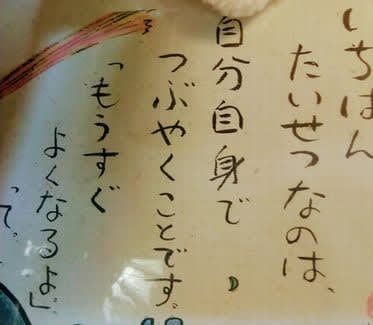 いちばん
たいせつなのは、
自分自身で
つぶやくことです。
「もうすぐ
よくなるよ」
って。